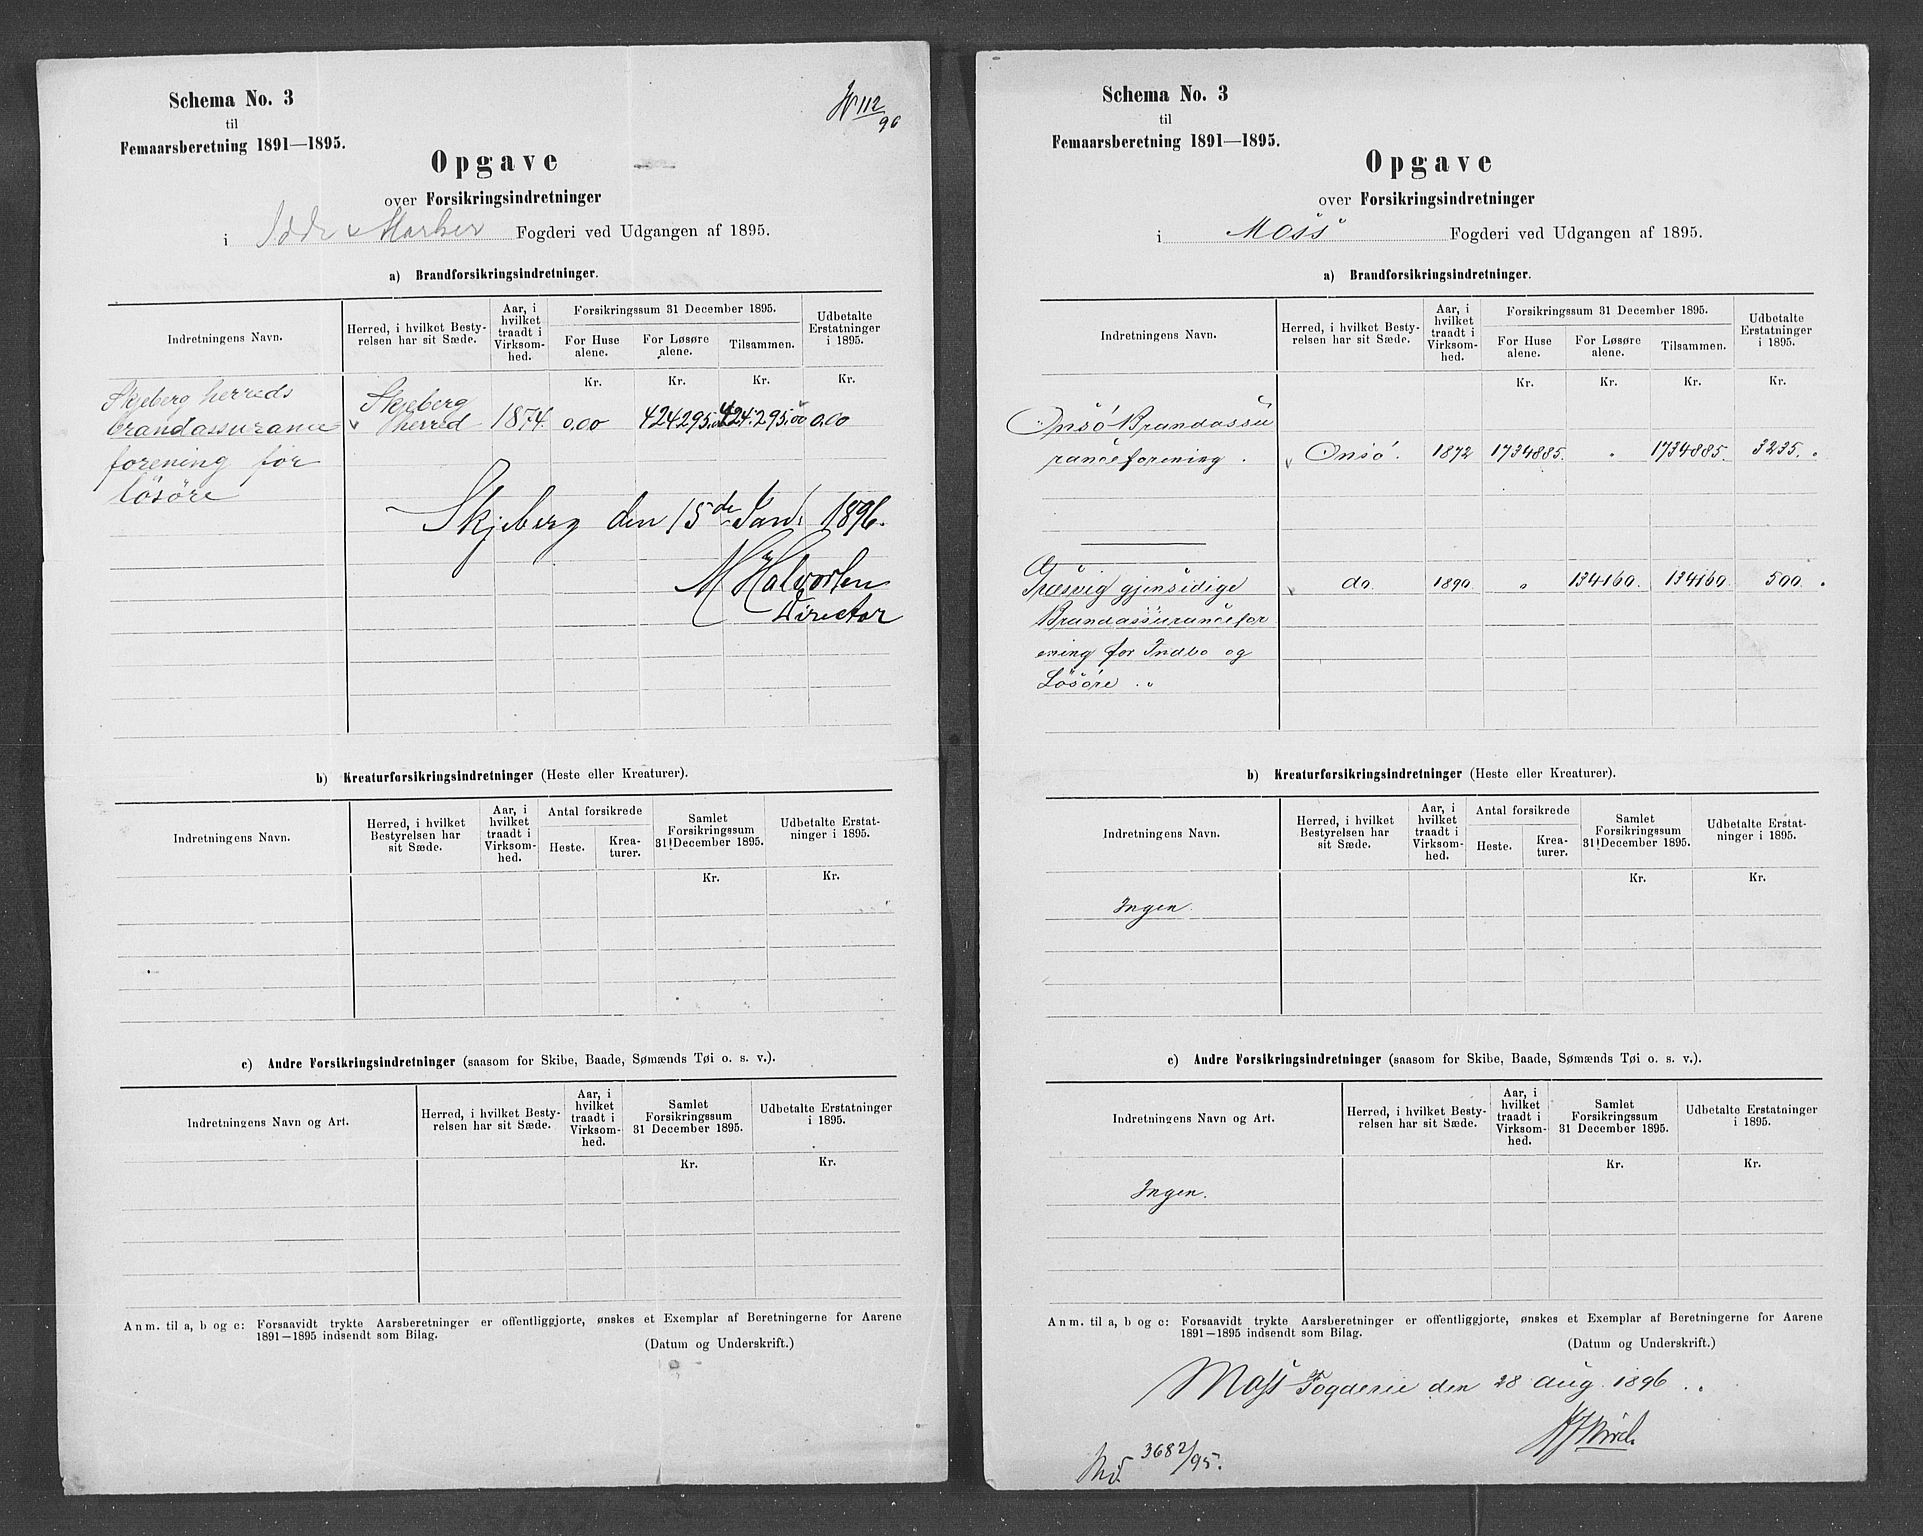 Schema No. 3
til
Femaarsberetning 1891—1895.
112
96
Opgave
over Forsikringsindretninger
i Idde & Marker Fogderi ved Udgangen af 1895.
a) Brandforsikringsindretninger.
Indretningens Navn.
Herred, i hvilket Besty-
relsen har sit Sæde.
Aar, i
hvilket
traadt i
Virksom-
hed.
Forsikringssum 31 December 1895.
For Huse
alene.
For Løsøre
alene.
Tilsammen.
Udbetalte
Erstatninger
i 1895.
Kr. Kr. Kr. Kr.
Skjeberg herreds
brandassurance
forening for
løsøre
Skjeberg
herred
1874. 0,00 424295,00 424.295,00 0,00
Skjeberg den 15de Jan. 1896.
M Halvorsen
Director
b) Kreaturforsikringsindretninger (Heste eller Kreaturer).
Indretningens Navn.
Herred, i hvilket
Bestyrelsen har
sit Sæde.
Aar, i
hvilket
traadt i
Virksom-
hed.
Antal forsikrede
Heste.
Krea-
turer.
Samlet
Forsikringssum
31 December 1895.
Udbetalte Erstat-
ninger i 1895.
Kr. Kr.
c) Andre Forsikringsindretninger (saasom for Skibe, Baade, Sømænds Tøi o. s. v.).
Indretningens Navn og Art.
Herred, i hvilket Besty-
relsen har sit Sæde.
Aar, i
hvilket
traadt i
Virksom-
hed.
Samlet
Forsikringssum
31 December 1895.
Udbetalte Erstatninger
i 1895.
Kr. Kr.
Anm. til a, b og c: Forsaavidt trykte Aarsberetninger er offentliggjorte, ønskes et Exemplar af Beretningerne for Aarene
1891—1895 indsendt som Bilag.
(Datum og Underskrift.)
Schema No. 3
til
Femaarsberetning 1891—1895.
Opgave
over Forsikringsindretninger
i Moss Fogderi ved Udgangen af 1895.
a) Brandforsikringsindretninger.
Indretningens Navn.
Herred, i hvilket Besty-
relsen har sit Sæde.
Aar, i
hvilket
traadt i
Virksom-
hed.
Forsikringssum 31 December 1895.
For Huse
alene.
For Løsøre
alene.
Tilsammen.
Udbetalte
Erstatninger
i 1895.
Kr. Kr. Kr. Kr.
Onsö Brandassu
ranceforening. Onsö. 1872 1734885. " 1734885. 3235. "
Græsvig gjensidige do. 1890. " 134160. 134160. 500. "
Brandassurancefor
ening for Indbo og
Lösöre. "
b) Kreaturforsikringsindretninger (Heste eller Kreaturer).
Indretningens Navn.
Herred, i hvilket
Bestyrelsen har
sit Sæde.
Aar, i
hvilket
traadt i
Virksom-
hed.
Antal forsikrede
Heste.
Krea-
turer.
Samlet
Forsikringssum
31 December 1895.
Udbetalte Erstat-
ninger i 1895.
Kr. Kr.
Ingen.
c) Andre Forsikringsindretninger (saasom for Skibe, Baade, Sømænds Tøi o. s. v.).
Indretningens Navn og Art.
Herred, i hvilket Besty-
relsen har sit Sæde.
Aar, i
hvilket
traadt i
Virksom-
hed.
Samlet
Forsikringssum
31 December 1895.
Udbetalte Erstatninger
i 1895.
Kr. Kr.
Ingen.
Anm. til a, b og c: Forsaavidt trykte Aarsberetninger er offentliggjorte, ønskes et Exemplar af Beretningerne for Aarene
1891—1895 indsendt som Bilag.
(Datum og Underskrift.)
Moss Fogderie den 28 Aug. 1896.
3682/95.